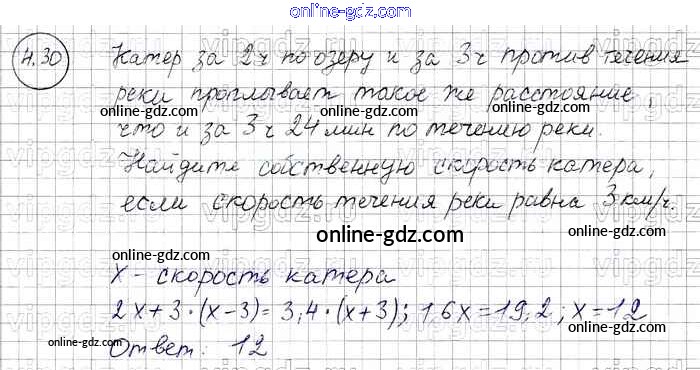 online-gdz.com
4.30 Катер за 2ч по озеру и за 3ч против течения
реки проплывает такое же расстояние,
online-gdz.com online-gdz.com
что и за 3ч 24мин по течению реки.
Найдите собственную скорость катера,
online-gdz.com online-gdz.com
если скорость течения реки равна 3км/ч.
online-gdz.com
х - скорость катера
online-gdz.com
2х+3·(х-3)=3,4·(х+3); 1,6х=19,2; х=12
online-gdz.com online-gdz.com
Ответ: 12